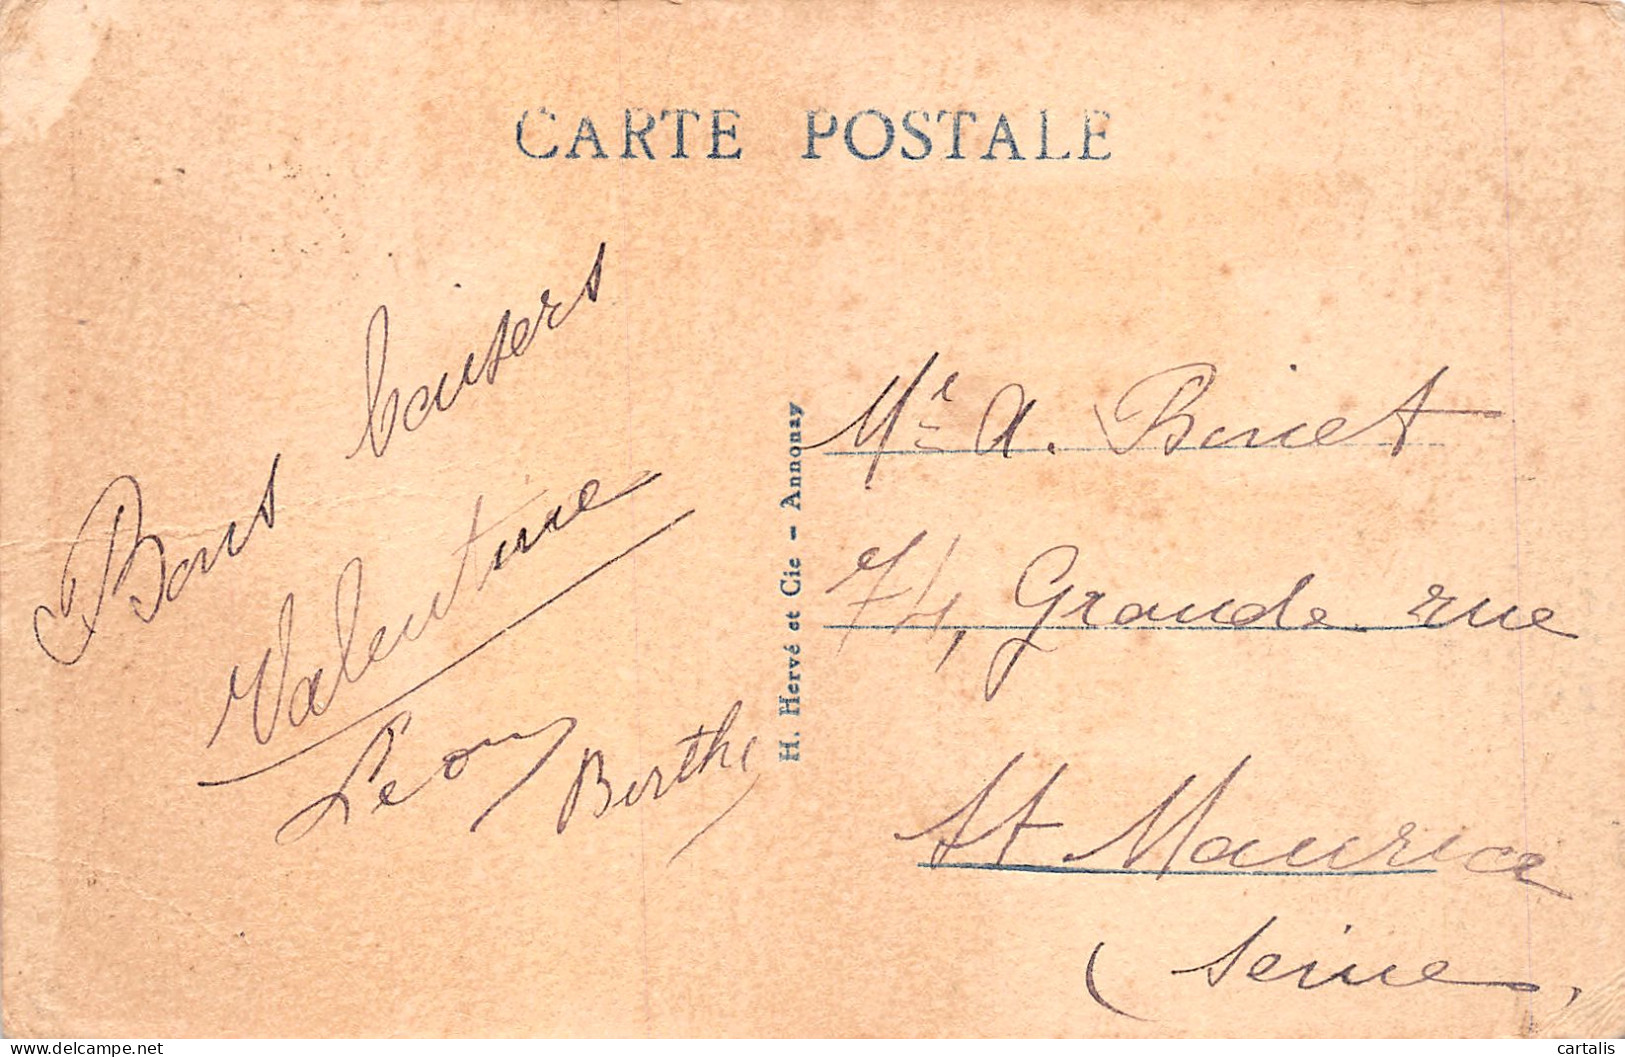 CARTE POSTALE
Bons baisers
Valentine
Léon
Berthe
H. Hervé et Cie - Annonay
Mr A. Binet
74, Grande rue
St Maurice
(Seine,
cartalis